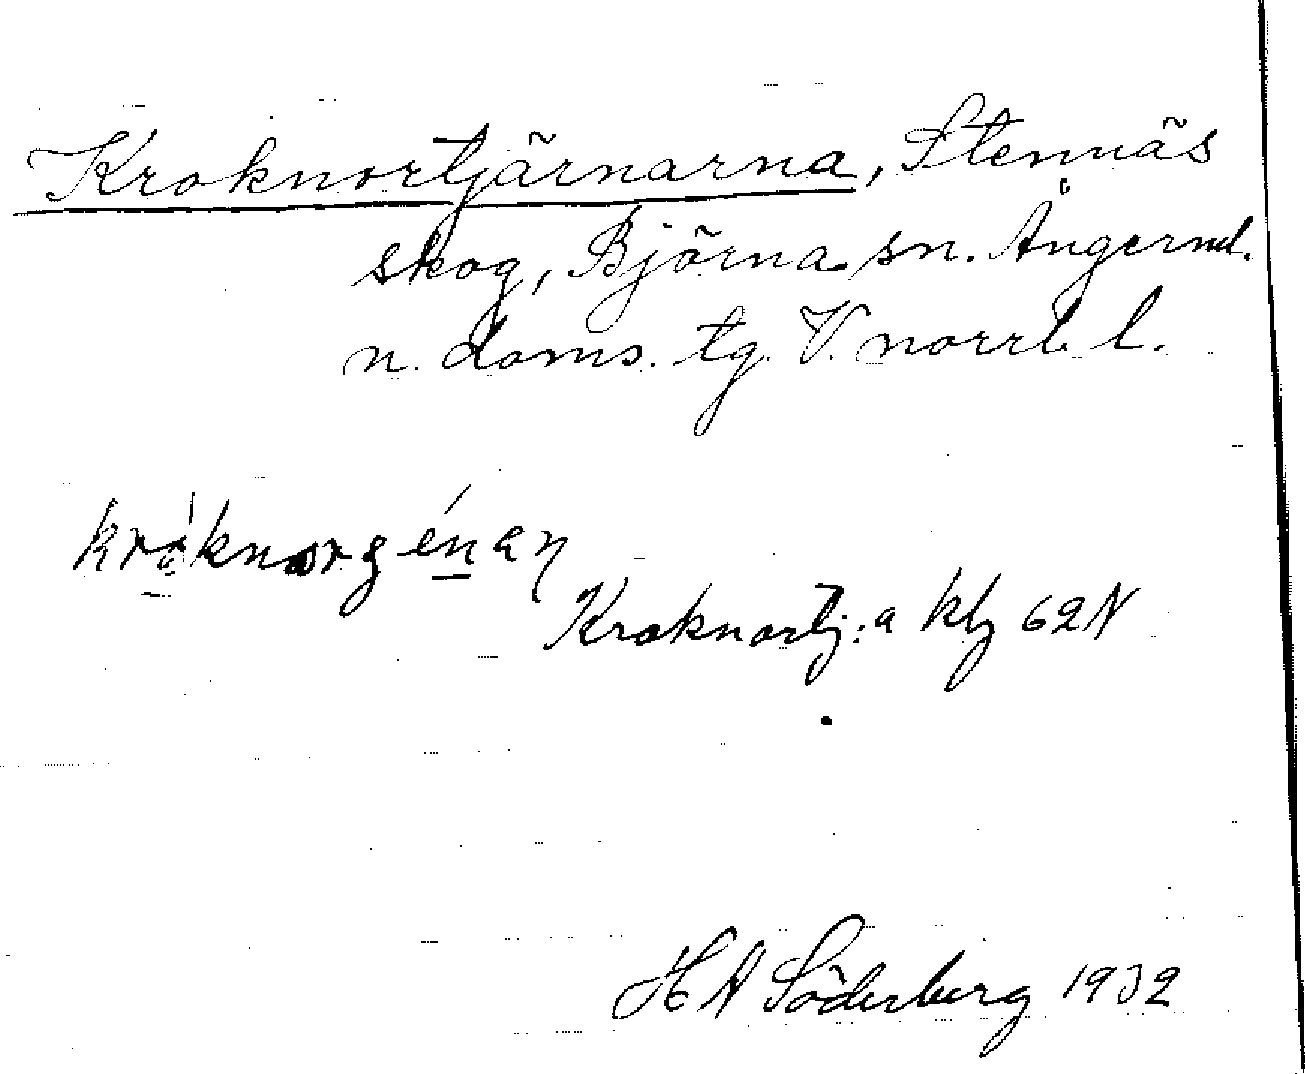 Kroknortjärnarna, Stennäs
skog, Björna sn. Ångerml.
n. doms. tg. V. norrl. l.
kroknorgénan
Kroknortj:a kbl 62 N
H A Söderberg 1932